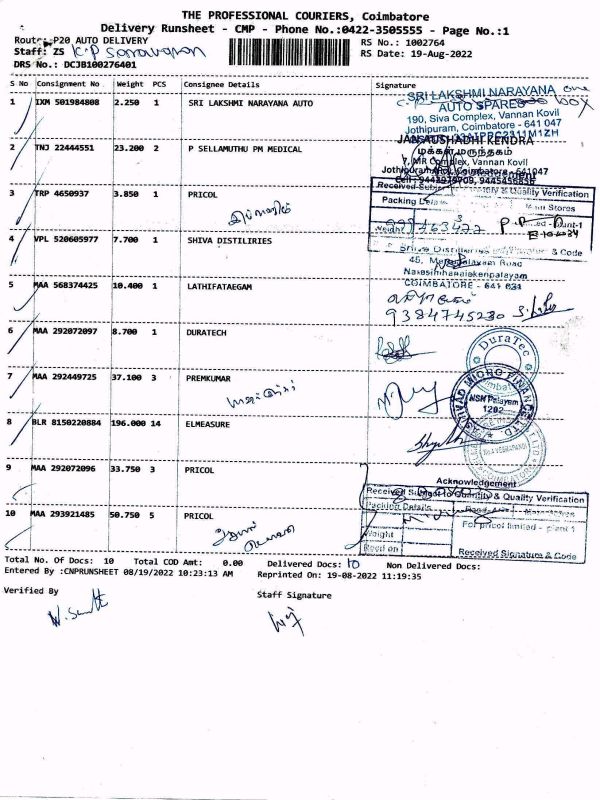 THE PROFESSIONAL COURIERS, Coimbatore
Delivery Runsheet - CMP - Phone No.:0422-3505555 - Page No.:1
Route: P20 AUTO DELIVERY
RS No.: 1002764
Staff: ZS K.P Saravanan
RS Date: 19-Aug-2022
DRS No.: DCJB100276401
S No Consignment No Weight PCS Consignee Details Signature
1 IXM 501984808 2.250 1 SRI LAKSHMI NARAYANA AUTO
SRI LAKSHMI NARAYANA one
AUTO SPARES box
190, Siva Complex, Vannan Kovil
Jothipuram, Coimbatore - 641 047
2 TNJ 22444551 23.200 2 P SELLAMUTHU PM MEDICAL
JAN AUSHADHI KENDRA
மக்கள் மருந்தகம்
7, MR Complex, Vannan Kovil
Jothipuram Coimbatore - 641047
3 TRP 4650937 3.850 1 PRICOL
Received Subject Quantity & Quality Verification
Packing Details Main Stores
Weight
4 VPL 520605977 7.700 1 SHIVA DISTILIRIES
Shiva Distilleries
45, Mettupalayam Road
Narasimhanaickenpalayam
COIMBATORE - 641 031
5 MAA 568374425 10.400 1 LATHIFATAEGAM
9384745230
6 MAA 292072097 8.700 1 DURATECH
DuraTec
7 MAA 292449725 37.100 3 PREMKUMAR
NSN Palayam
1202
8 BLR 8150220884 196.000 14 ELMEASURE
9 MAA 292072096 33.750 3 PRICOL
Acknowledgement
Received Subject to Quantity & Quality Verification
Packing Details
10 MAA 293921485 50.750 5 PRICOL
For pricol limited - plant 1
Weight
Recd on
Received Signature & Code
Total No. Of Docs: 10 Total COD Amt: 0.00 Delivered Docs: 10 Non Delivered Docs:
Entered By :CNPRUNSHEET 08/19/2022 10:23:13 AM Reprinted On: 19-08-2022 11:19:35
Verified By
Staff Signature